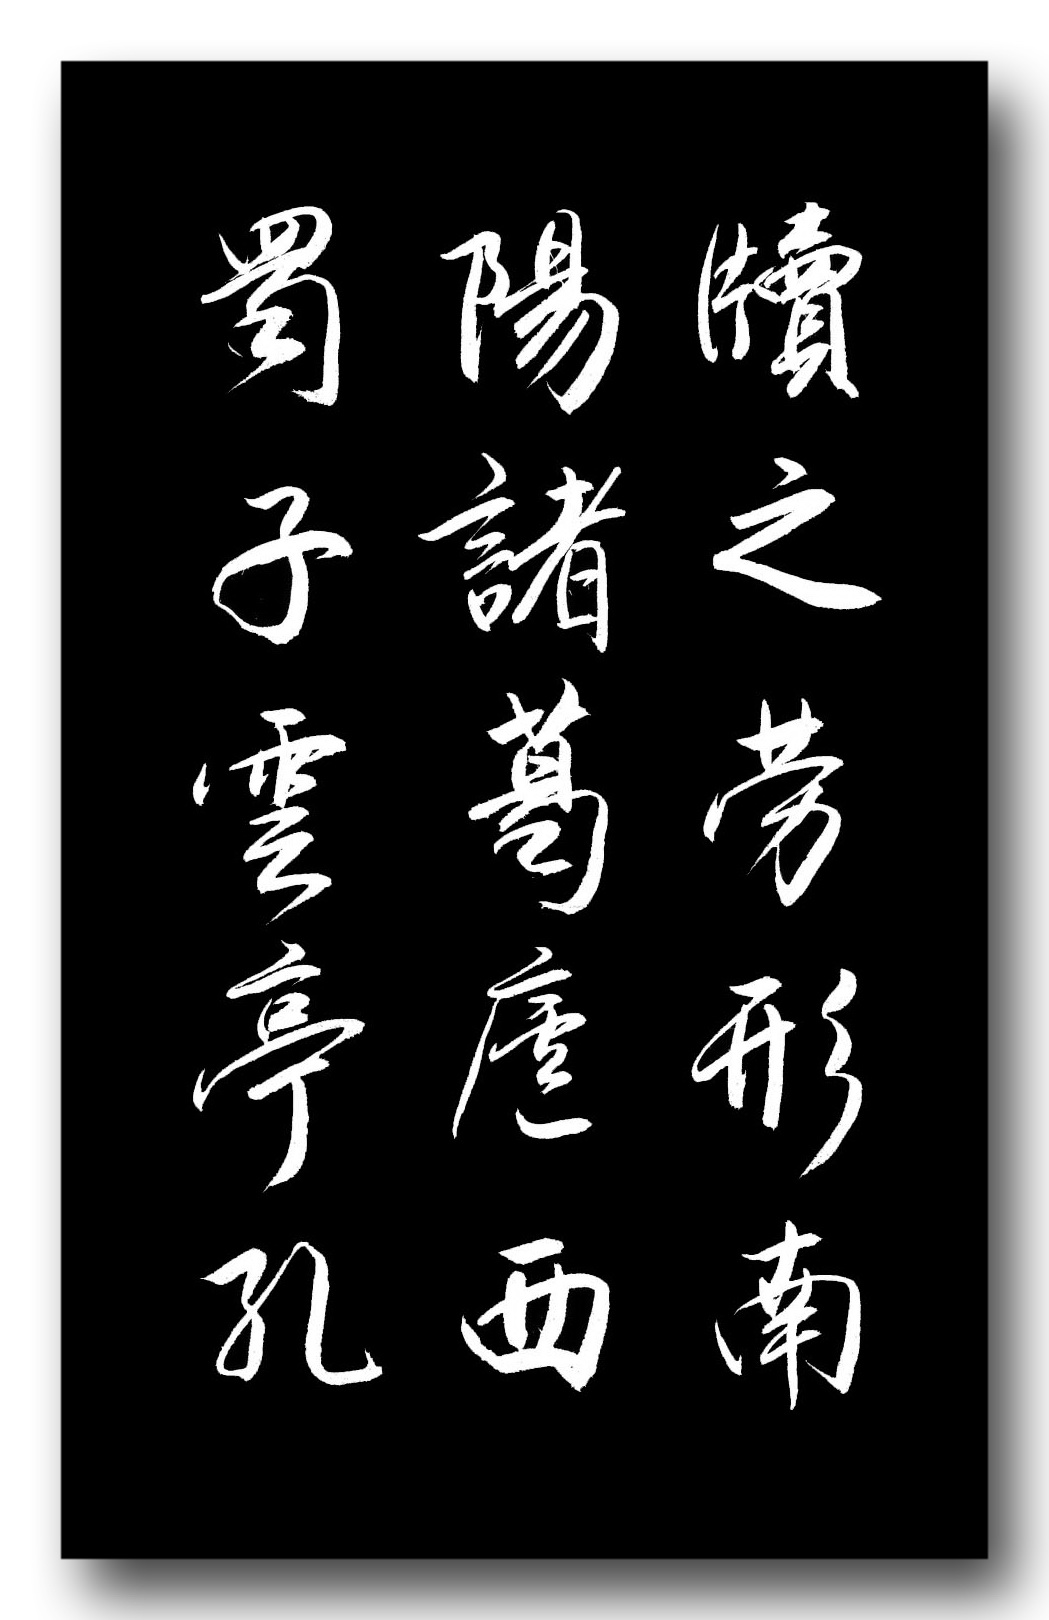 牘之勞形南
陽諸葛廬西
蜀子雲亭孔